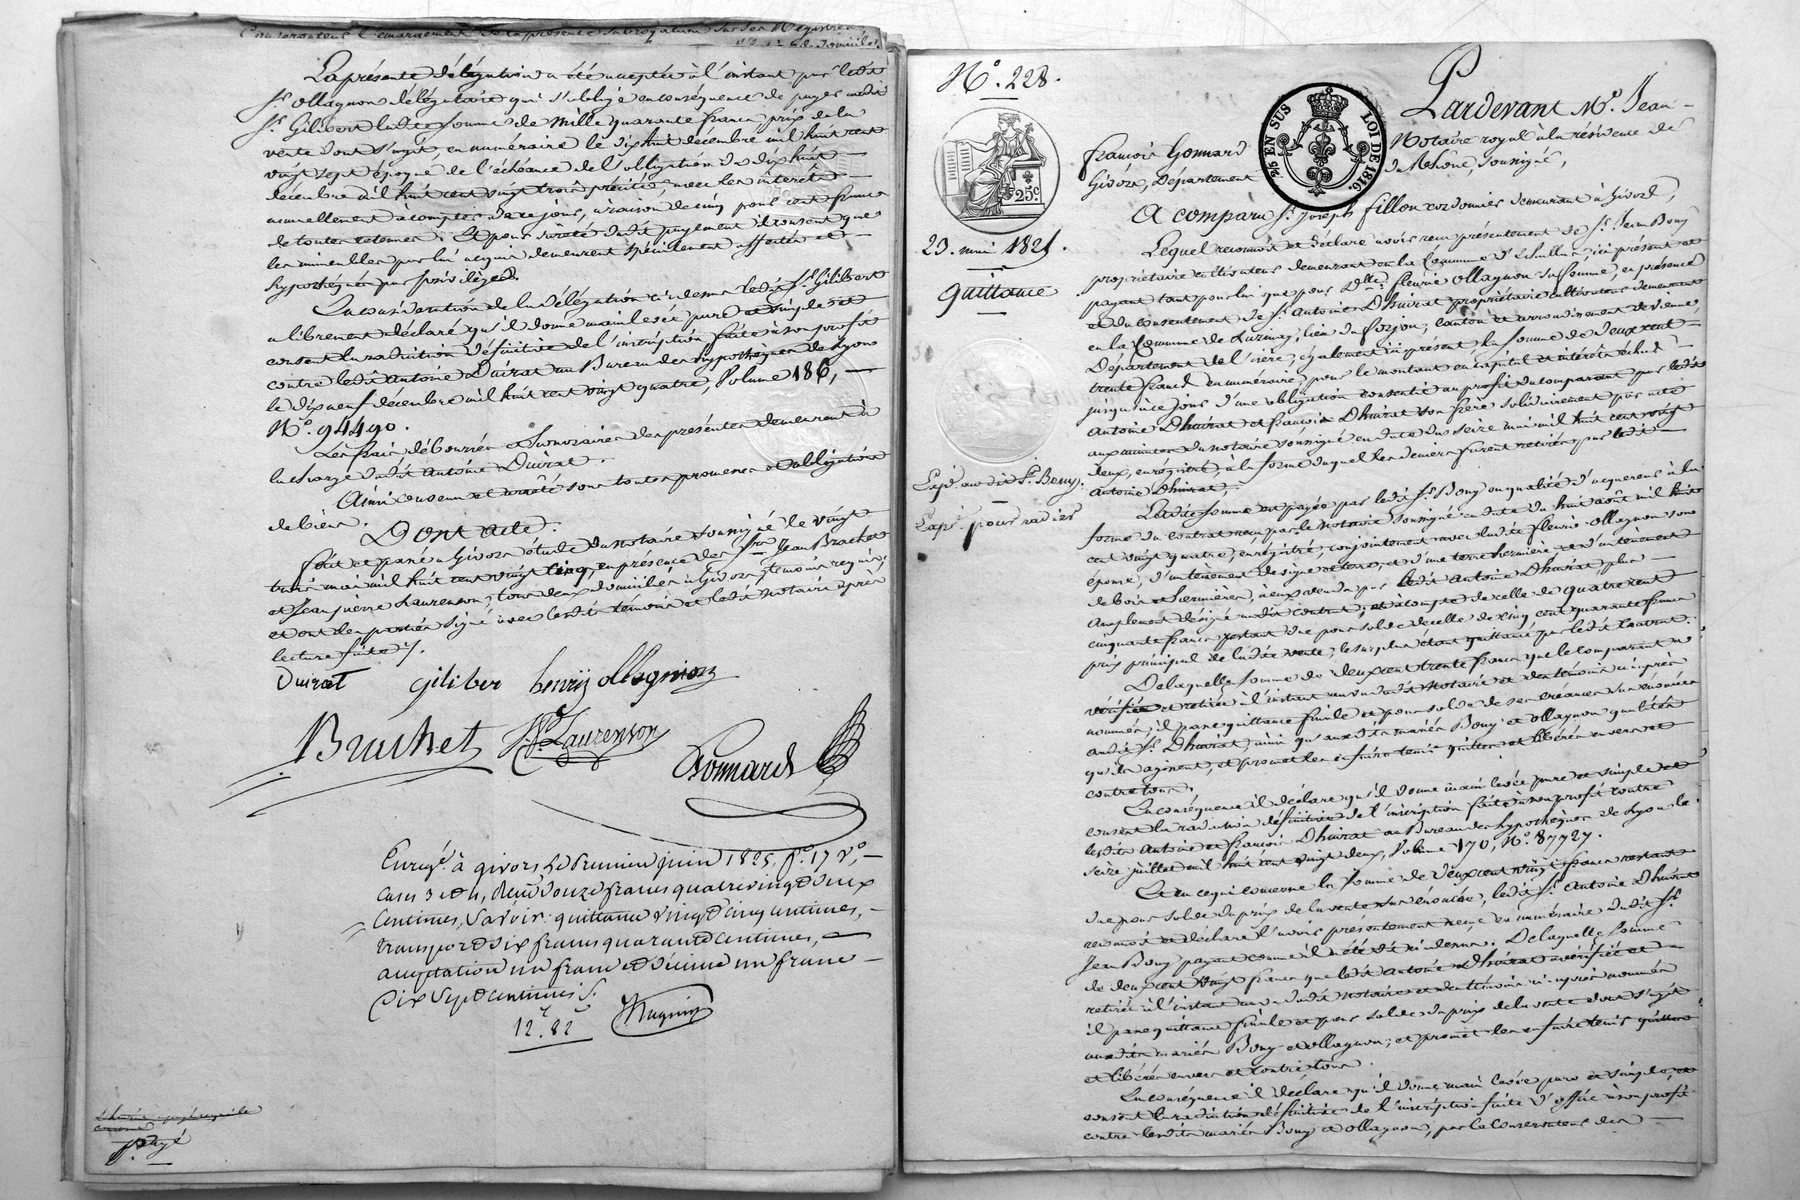 La présente délégation a été acceptée à l'instant par ledit
Sr. Ollagnon délégataire qui s'oblige en conséquence de payer audit
Sr. Gilibert ladite somme de mille quarante francs prix de la
vente dont s'agit, en numéraire le dix huit décembre mil huit cent
vingt sept époque de l'échéance de l'obligation du dix huit
décembre mil huit cent vingt trois précitée, avec les intérêts
annuellement à compter de ce jour, à raison de cinq pour cent francs
de toutes retenues. Et pour sureté dudit payement il consent que
les immeubles par lui acquis demeurent spécialement affectés et
hypothéqués par privilège.
En considération de la délégation ci dessus ledit Sr. Gilibert
a librement déclaré qu'il donne main levée pure et simple et
consent la radiation définitive de l'inscription faite à son profit
contre ledit Antoine Duirat au Bureau des hypothèques de Lyon
le dix neuf décembre mil huit cent vingt quatre, Volume 186, —
No. 94490.
Les frais déboursés et honoraires des présentes demeurent à
la charge dudit Antoine Duirat.
Ainsi convenu et arrêté sous toutes promesses et obligations
de biens.
Dont acte.
fait et passé à Givors étude du notaire soussigné le vingt
trois mai mil huit cent vingt cinq, en présence des Srs. Jean Brachet
et Jean pierre Laurenson, tous deux domiciliés à Givors, témoins requis,
et ont les parties signé avec lesdits témoins et ledit notaire après
lecture faite.
Duirat giliber henry ollagnion
Brachet Laurenson
Gonnard
Enregé. à givors, le premier juin 1825, fo. 17 Vo., —
cases 3 et 4, reçu douze francs quatrevingt deux
centimes, Savoir: quittance vingt cinq centimes, —
transport six francs quarante centimes, —
un franc et décime un franc —
dix sept centimes.
12.f 82.c
payé
No. 228.
25.c
2/5 EN SUS LOI DE 1816.
23. mai 1825.
Quittance
Expé. audit Sr. Bouy.
Expé. pour radier
Pardevant Me. Jean-
françois Gonnard Notaire royal à la résidence de
Givors, Département du Rhône, soussigné,
A comparu Sr. Joseph fillon cordonnier demeurant à Givors,
Lequel reconnait et déclare avoir reçu présentement de Sr. Jean Bouy
propriétaire cultivateur demeurant en la Commune d'Echallas, ici présent et
payant tant pour lui que pour Delle. fleurie Ollagnon sa femme, en présence
et du consentement de Sr. Antoine Dhuirat propriétaire cultivateur demeurant
en la Commune de Luzinay, lieu du canton et arrondissement de vienne
Département de l'isère, également ici présent la somme de deux cent
trente francs en numéraire, pour le montant en capital et intérêts échus
jusqu'à ce jour d'une obligation consentie au profit du comparant par ledit
Antoine Dhuirat et françois Dhuirat son frère solidairement par acte
aux minutes du notaire soussigné en date du seize mai mil huit cent vingt
deux, enregistré, à la forme duquel les deniers furent retirés par ledit —
Antoine Dhuirat,
Ladite somme est payée par ledit Sr. Bouy en qualité d'acquéreur à la
forme du contrat reçu par le Notaire soussigné en date du huit août mil huit
cent vingt quatre, enrégistré, conjointement avec ladite fleurie Ollagnon son
épouse, d'un tènement de vigne et terre, et d'une terre hermière et d'un tènement
de bois et hermières, à eux vendus par ledit Antoine Dhuirat, plus —
amplement désigné audit contrat; et à compte de celle de quatre cent
cinquante francs restant due pour solde de celle de cinq cent quarante francs
prix principal de ladite vente; le surplus étant quittancé par ledit contrat.
De laquelle somme de deux cent trente francs que le comparant a
vérifiée et retirée à l'instant au vu dudit Notaire et des témoins ci après
nommés, il passe quittance finale et pour solde de ses créances sus énoncées
audit Sr. Dhuirat, ainsi qu'auxdits mariés Bouy et Ollagnon qualités
qu'ils agissent, et promet les en faire tenir quittes et libérés envers et
contre tous.
En conséquence il déclare qu'il donne main levée pure et simple et
consent la radiation définitive de l'inscription faite à son profit contre
lesdits Antoine et françois Dhuirat au Bureau des hypothèques de Lyon le
seize juillet mil huit cent vingt deux, Volume 170, No. 87727.
Et en ce qui concerne la somme de deux cent vingt francs restant
due pour solde du prix de la vente sus énoncée, ledit Sr. Antoine Dhuirat
reconnait et déclare l'avoir présentement reçue en numéraire dudit Sr.
Jean Bouy payant comme il a été dit ci dessus. De laquelle somme
de deux cent vingt francs que ledit Antoine Dhuirat a vérifiée et
retirée à l'instant au vu dudit Notaire et des témoins ci après nommés
il passe quittance finale et pour solde du prix de la vente dont s'agit
auxdits mariés Bouy et Ollagnon; et promet les en faire tenir quittes
et libérés envers et contre tous.
En conséquence il déclare qu'il donne main levée pure et simple, et
consent la radiation définitive de l'inscription faite d'office à son profit
contre lesdits mariés Bouy et Ollagnon, par le Conservateur des —